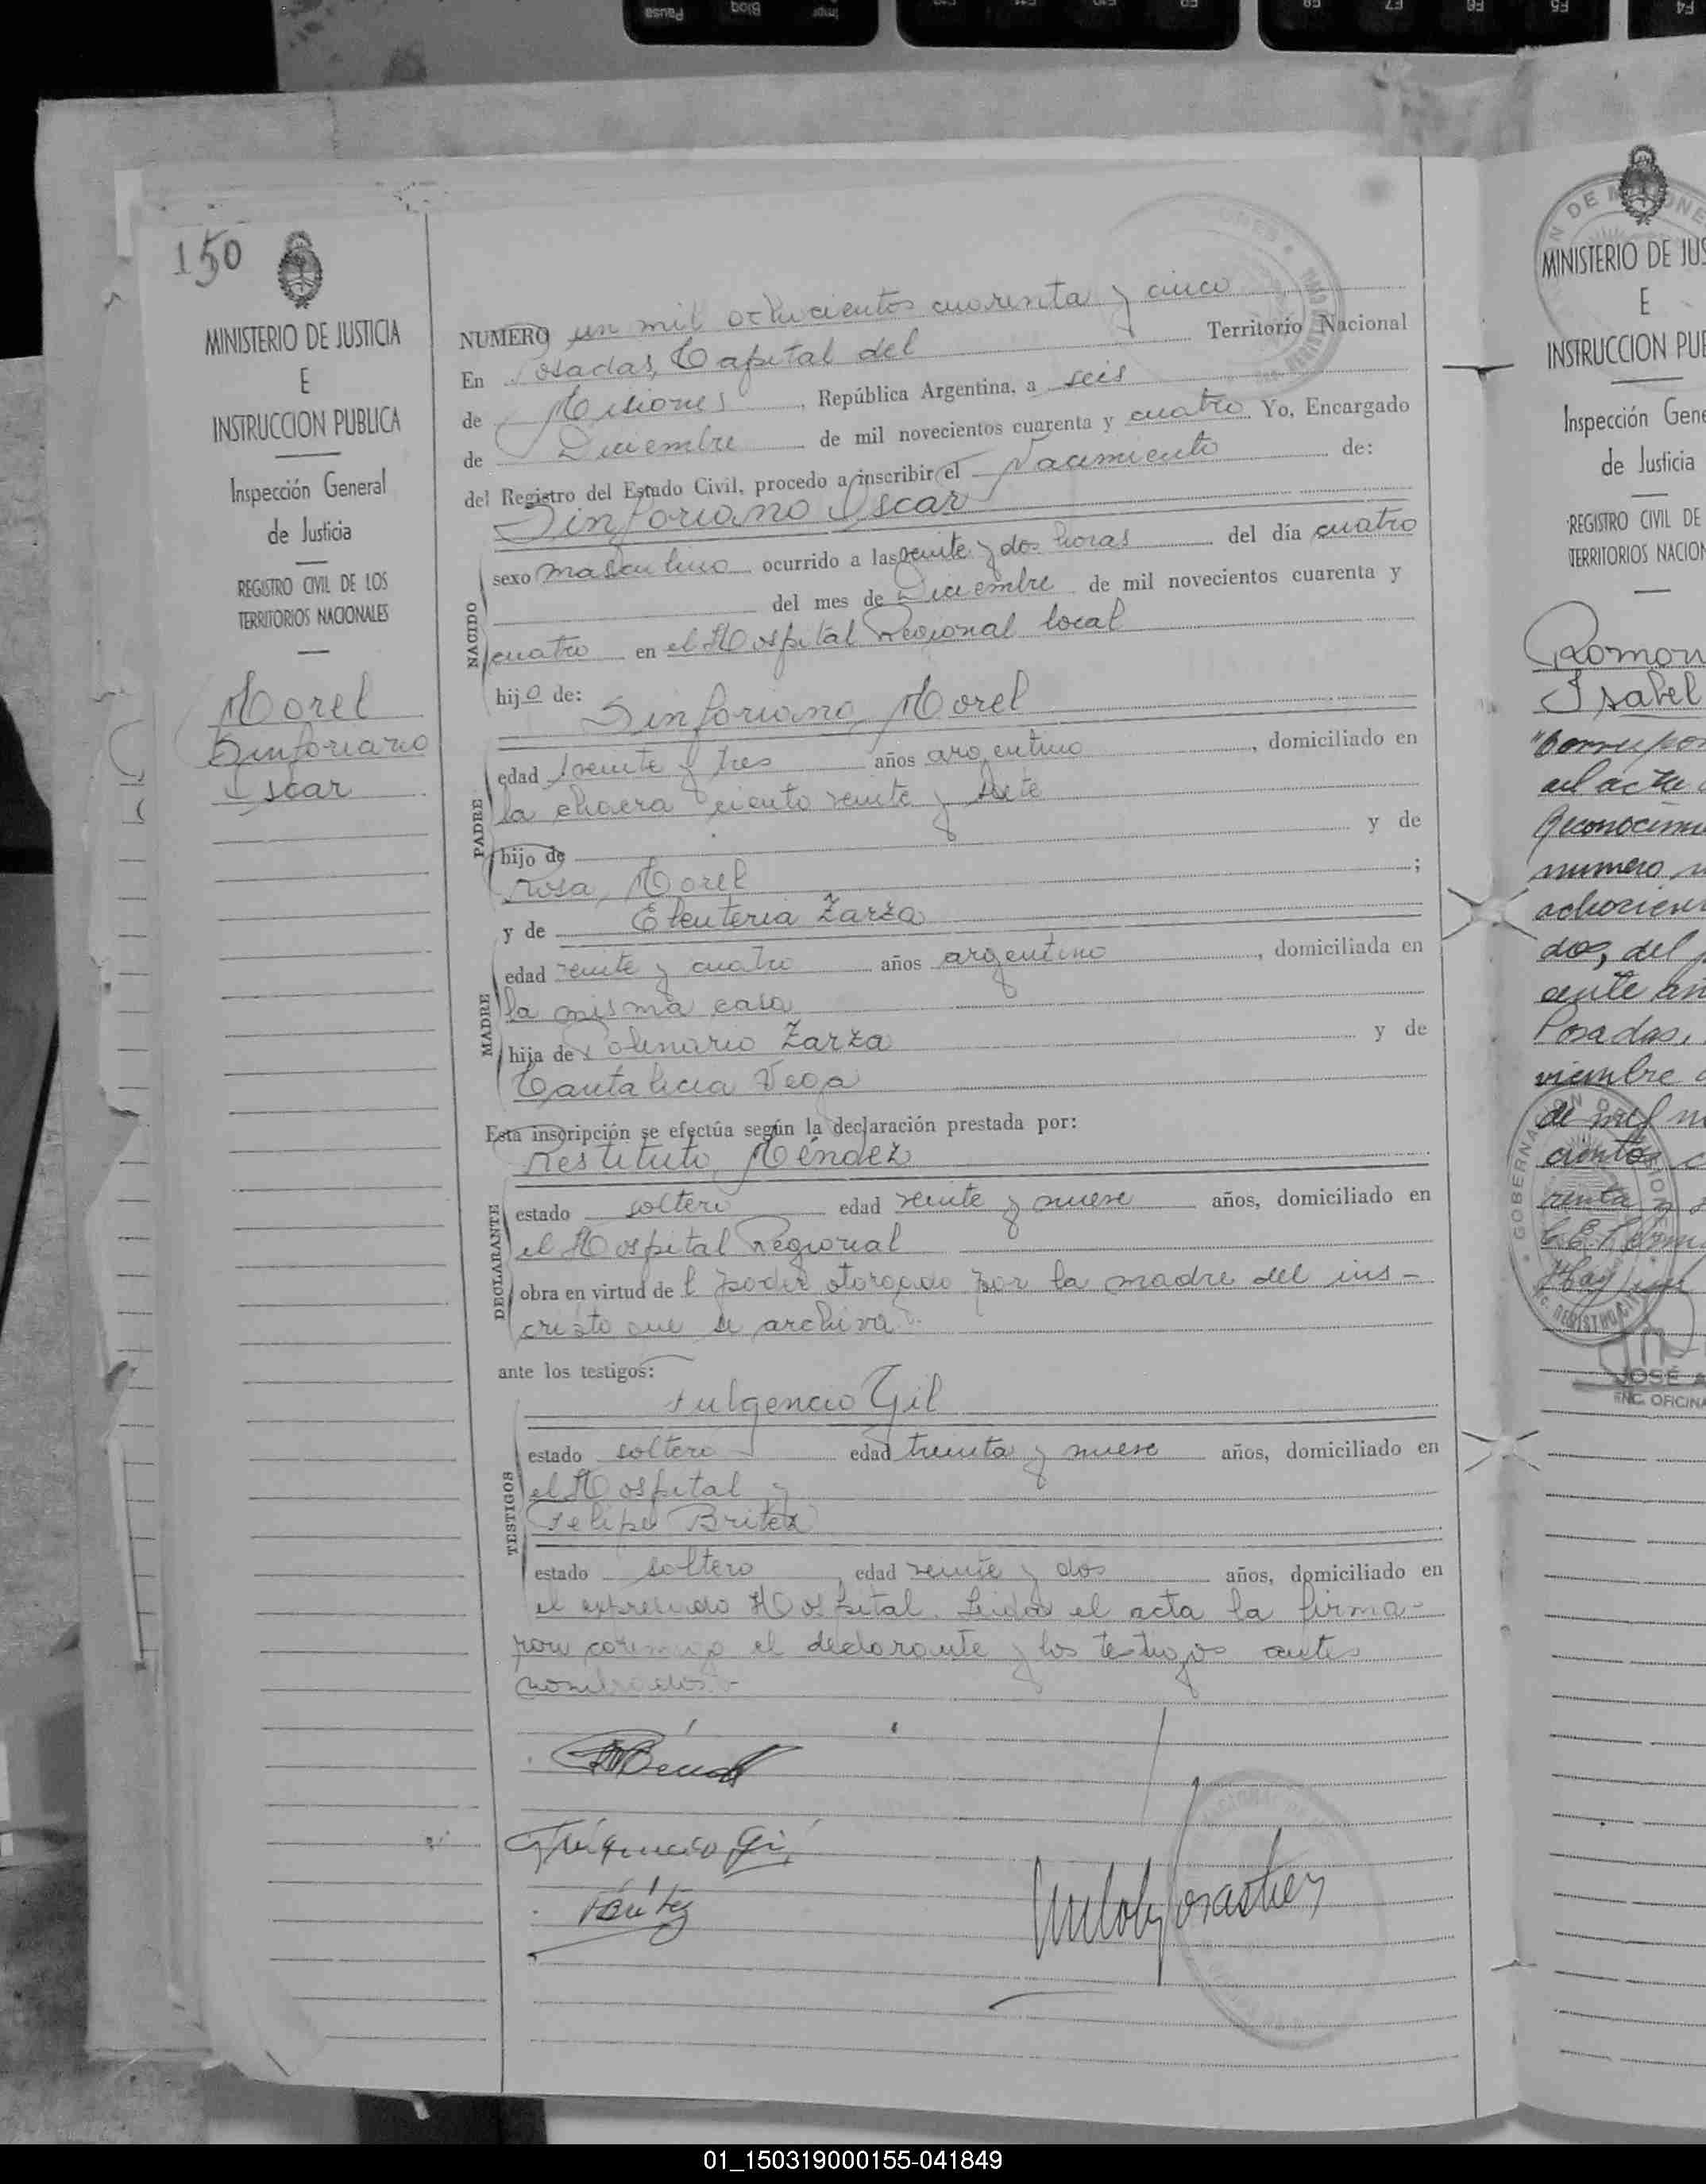 150
MINISTERIO DE JUSTICIA
E
INSTRUCCION PUBLICA
Inspección General
de Justicia
REGISTRO CIVIL DE LOS
TERRITORIOS NACIONALES
Morel
Sinforiano
Oscar
NUMERO un mil ochocientos cuarenta y cinco
En Posadas, Capital del Territorio Nacional
de Misiones, República Argentina, a seis
de Diciembre de mil novecientos cuarenta y cuatro Yo, Encargado
del Registro del Estado Civil, procedo a inscribir el Nacimiento de:
Sinforiano Oscar
NACIDO
sexo masculino ocurrido a las veinte y dos horas del dia cuatro
del mes de Diciembre de mil novecientos cuarenta y
cuatro en el Hospital Regional local
hijo de:
Sinforiano Morel
PADRE
edad veinte y tres años argentino, domiciliado en
la chacra ciento veinte y siete
hijo de y de
Rosa Morel ;
y de Eleuteria Zarza
MADRE
edad veinte y cuatro años argentino, domiciliada en
la misma casa
hija de Polinario Zarza y de
Cantalicia Vega
Esta inscripción se efectúa según la declaración prestada por:
Restituto Méndez
DECLARANTE
estado soltero edad veinte y nueve años, domiciliado en
el Hospital Regional
obra en virtud de l poder otorgado por la madre del ins-
cripto que se archiva.
ante los testigos:
Fulgencio Gil
TESTIGOS
estado soltero edad treinta y nueve años, domiciliado en
el Hospital y
Felipe Britez
estado soltero edad veinte y dos años, domiciliado en
el expresado Hospital. Leida el acta la firma-
ron conmigo el declarante y los testigos antes
nombrados.-
Fulgencio Gil
MINISTERIO DE JUS
E
INSTRUCCION PUB
Inspección Gene
de Justicia
REGISTRO CIVIL DE
TERRITORIOS NACION
Isabel
del acta
numero
dos, del
Posadas,
viembre
de mil n
cientos c
renta y
JOSÉ A
ENC. OFICINA
01_150319000155-041849